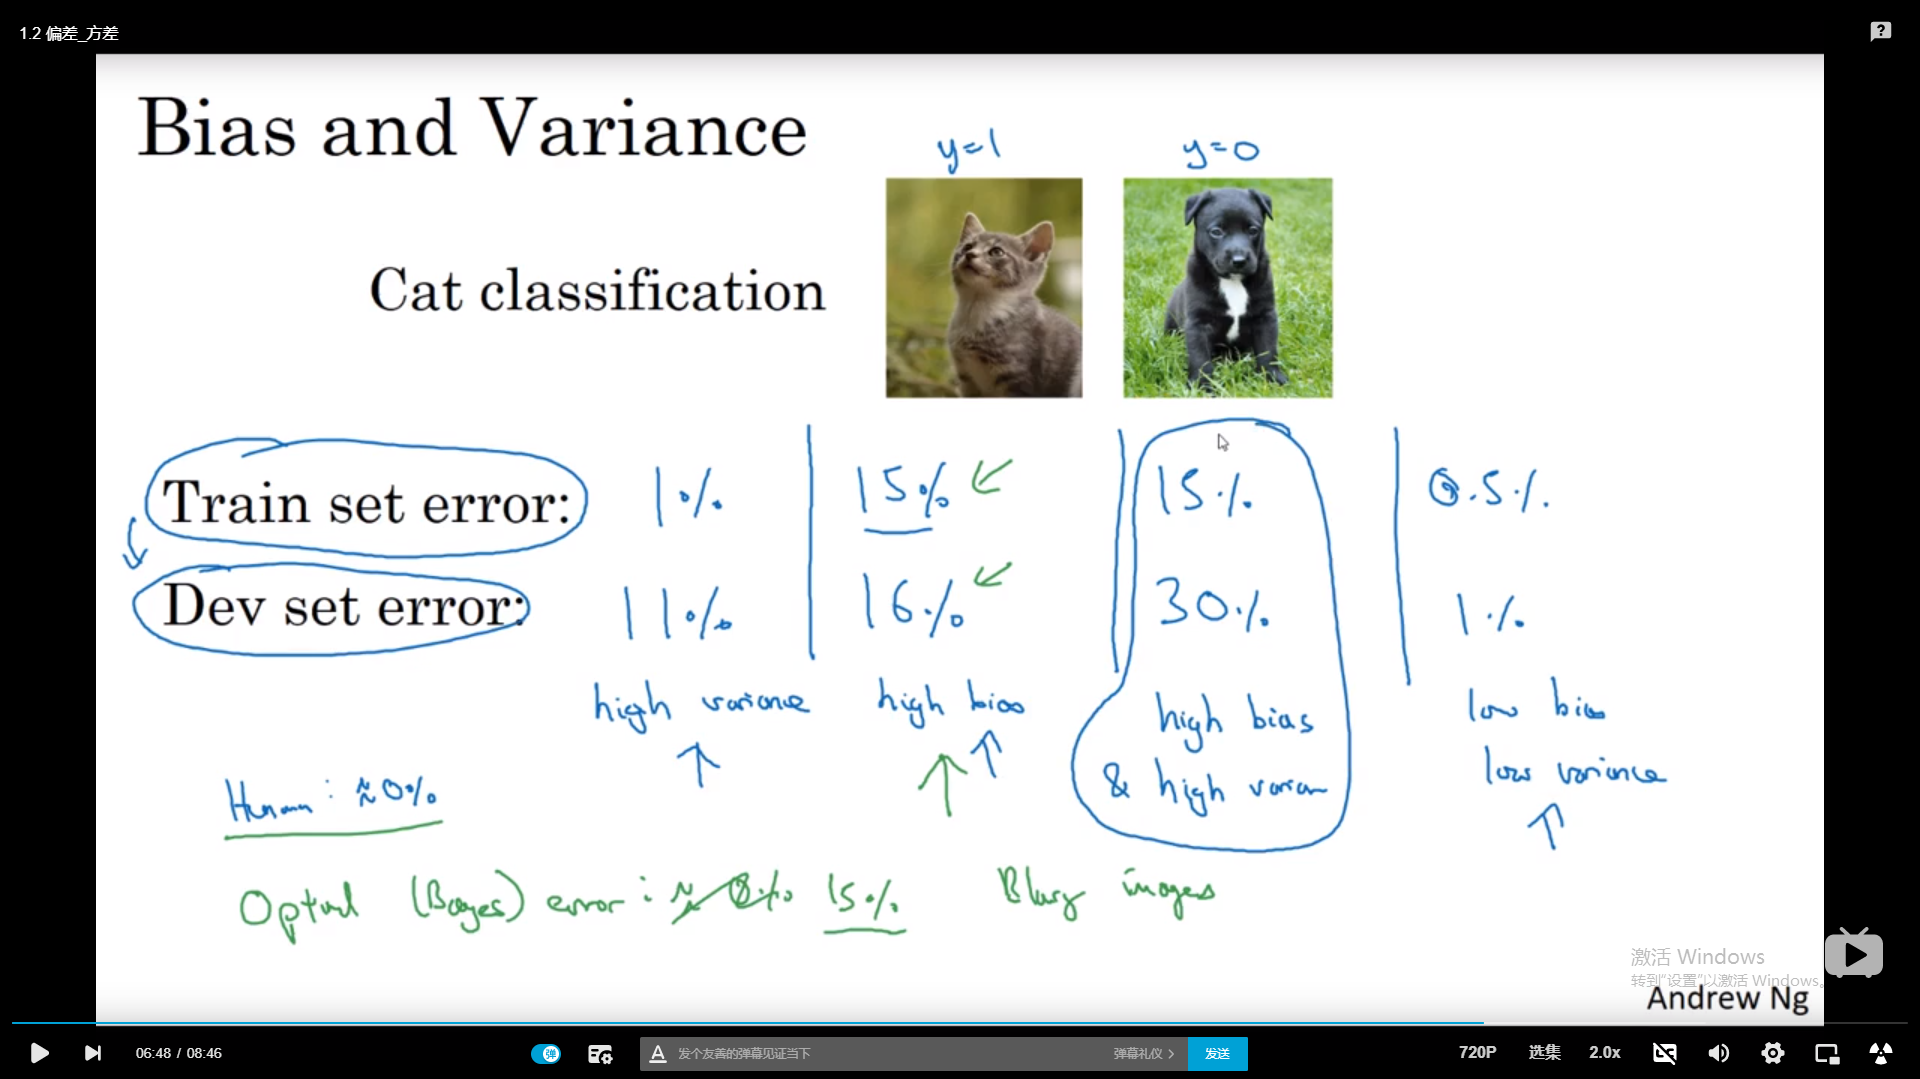 1.2 偏差_方差
Bias and Variance
y=1
y=0
Cat classification
Train set error:
1%
15%
15%
0.5%
Dev set error:
11%
16%
30%
1%
high variance
high bias
high bias
& high varian
low bias
low variance
Human: ≈0%
Optimal (Bayes) error: ≈0% 15%
Blurry images
激活 Windows
转到“设置”以激活 Windows。
Andrew Ng
06:48 / 08:46
弹
A
发个友善的弹幕见证当下
弹幕礼仪 >
发送
720P
选集
2.0x